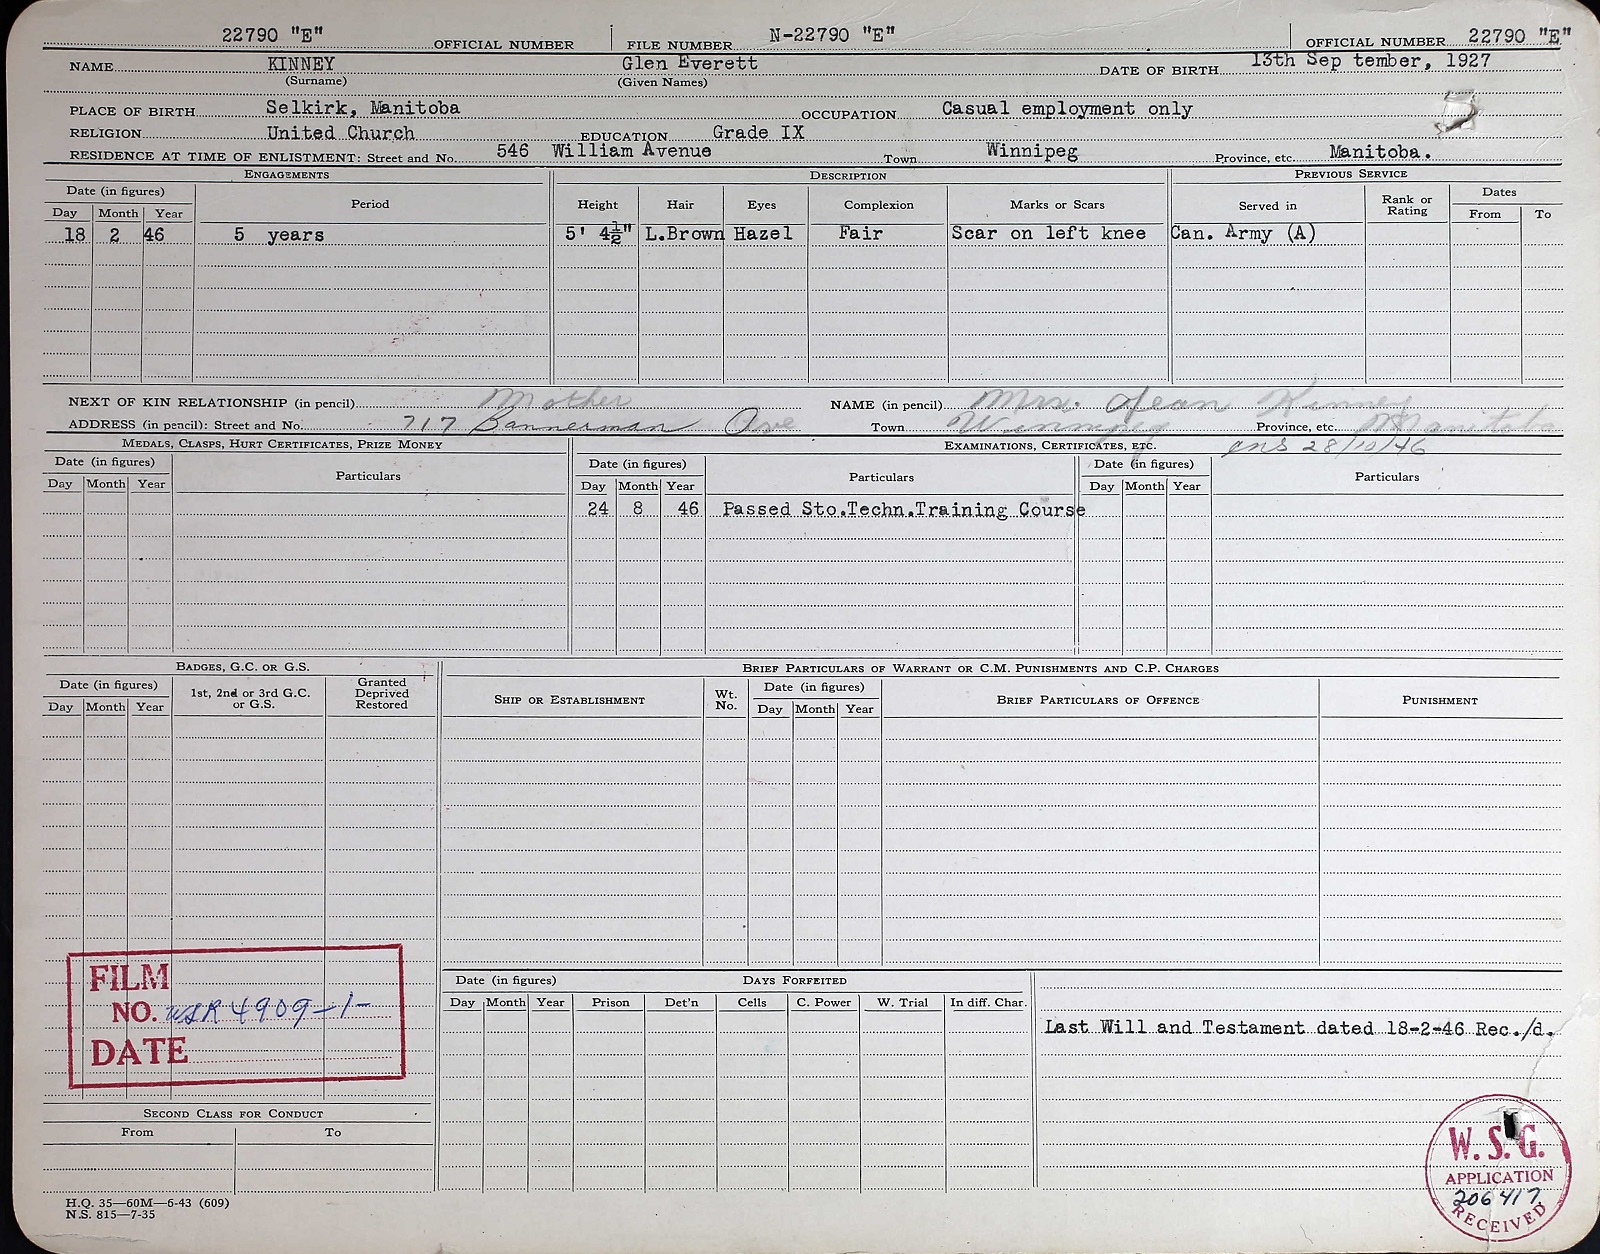 22790 "E" OFFICIAL NUMBER FILE NUMBER N-22790 "E" OFFICIAL NUMBER 22790 "E"
NAME KINNEY Glen Everett DATE OF BIRTH 13th Sep tember, 1927
(Surname) (Given Names)
PLACE OF BIRTH Selkirk, Manitoba OCCUPATION Casual employment only
RELIGION United Church EDUCATION Grade IX
RESIDENCE AT TIME OF ENLISTMENT: Street and No. 546 William Avenue Town Winnipeg Province, etc. Manitoba.
ENGAGEMENTS DESCRIPTION PREVIOUS SERVICE
Date (in figures) Period Height Hair Eyes Complexion Marks or Scars Served in Rank or Rating Dates
Day Month Year From To
18 2 46 5 years 5' 4½" L.Brown Hazel Fair Scar on left knee Can. Army (A)
NEXT OF KIN RELATIONSHIP (in pencil) Mother NAME (in pencil) Mrs. Jean Kinney
ADDRESS (in pencil): Street and No. 717 Bannerman Ave Town Winnipeg Province, etc. Manitoba
MEDALS, CLASPS, HURT CERTIFICATES, PRIZE MONEY EXAMINATIONS, CERTIFICATES, ETC. 28/10/46
Date (in figures) Particulars Date (in figures) Particulars Date (in figures) Particulars
Day Month Year Day Month Year Day Month Year
24 8 46 Passed Sto.Techn.Training Course
BADGES, G.C. OR G.S. BRIEF PARTICULARS OF WARRANT OR C.M. PUNISHMENTS AND C.P. CHARGES
Date (in figures) 1st, 2nd or 3rd G.C. or G.S. Granted Deprived Restored SHIP OR ESTABLISHMENT Wt. No. Date (in figures) BRIEF PARTICULARS OF OFFENCE PUNISHMENT
Day Month Year Day Month Year
FILM
NO. WSR 4909-1-
DATE
Date (in figures) DAYS FORFEITED
Day Month Year Prison Det'n Cells C. Power W. Trial In diff. Char.
Last Will and Testament dated 18-2-46 Rec./d.
SECOND CLASS FOR CONDUCT
From To
W.S.G.
APPLICATION
206417
RECEIVED
H.Q. 35—60M—6-43 (609)
N.S. 815—7-35